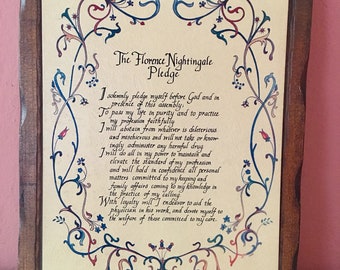 The Florence Nightingale
Pledge
I solemnly pledge myself before God and in
presence of this assembly;
To pass my life in purity and to practice
my profession faithfully.
I will abstain from whatever is deleterious
and mischievous and will not take or know-
ingly administer any harmful drug.
I will do all in my power to maintain and
elevate the standard of my profession
and will hold in confidence all personal
matters committed to my keeping and
family affairs coming to my knowledge in
the practice of my calling.
With loyalty will I endeavor to aid the
physician in his work, and devote myself to
the welfare of those committed to my care.